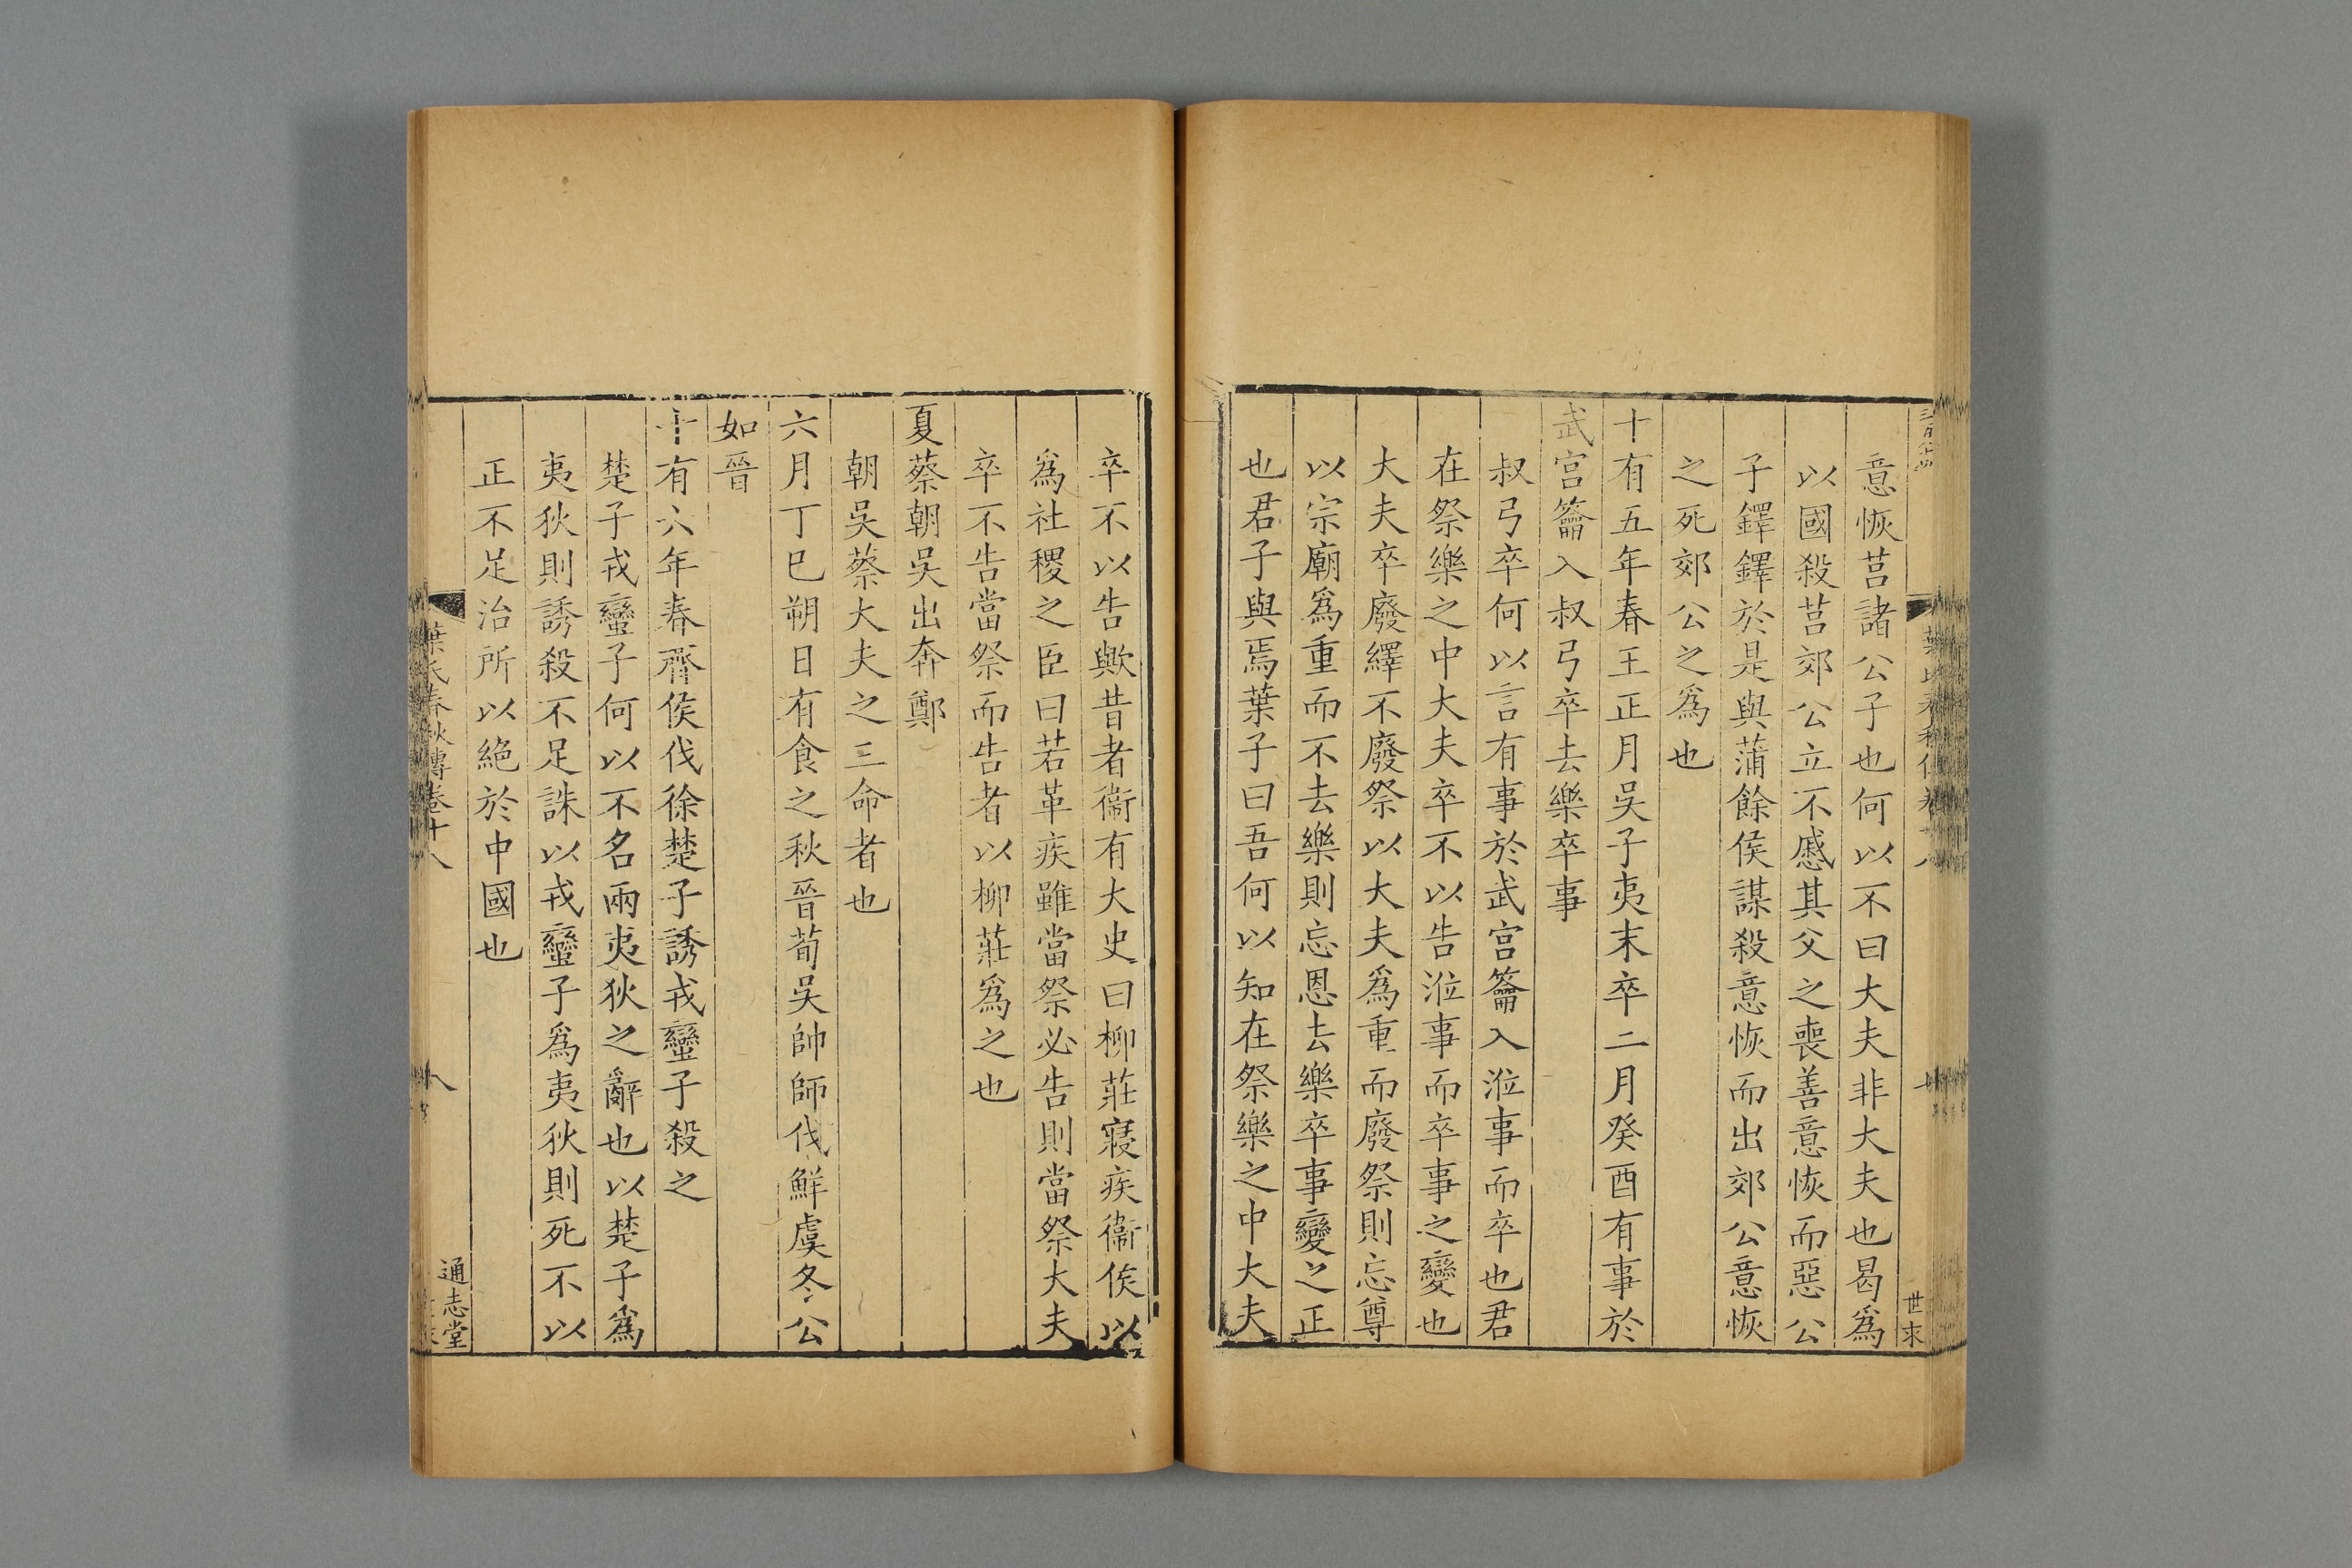 意恢莒諸公子也何以不曰大夫非大夫也曷爲
以國殺莒郊公立不慼其父之喪善意恢而惡公
子鐸鐸於是與蒲餘侯謀殺意恢而出郊公意恢
之死郊公之爲也
十有五年春王正月吳子夷末卒二月癸酉有事於
武宮籥入叔弓卒去樂卒事
叔弓卒何以言有事於武宮籥入涖事而卒也君
在祭樂之中大夫卒不以告涖事而卒事之變也
大夫卒廢繹不廢祭以大夫爲重而廢祭則忘尊
以宗廟爲重而不去樂則忘恩去樂卒事變之正
也君子與焉葉子曰吾何以知在祭樂之中大夫
世求
卒不以告歟昔者衞有大史曰柳莊寢疾衞侯以
爲社稷之臣曰若革疾雖當祭必告則當祭大夫
卒不告當祭而告者以柳莊爲之也
夏蔡朝吳出奔鄭
朝吳蔡大夫之三命者也
六月丁巳朔日有食之秋晉荀吳帥師伐鮮虞冬公
如晉
十有六年春齊侯伐徐楚子誘戎蠻子殺之
楚子戎蠻子何以不名兩夷狄之辭也以楚子爲
夷狄則誘殺不足誅以戎蠻子爲夷狄則死不以
正不足治所以絕於中國也
葉氏春秋傳卷十八
八
通志堂